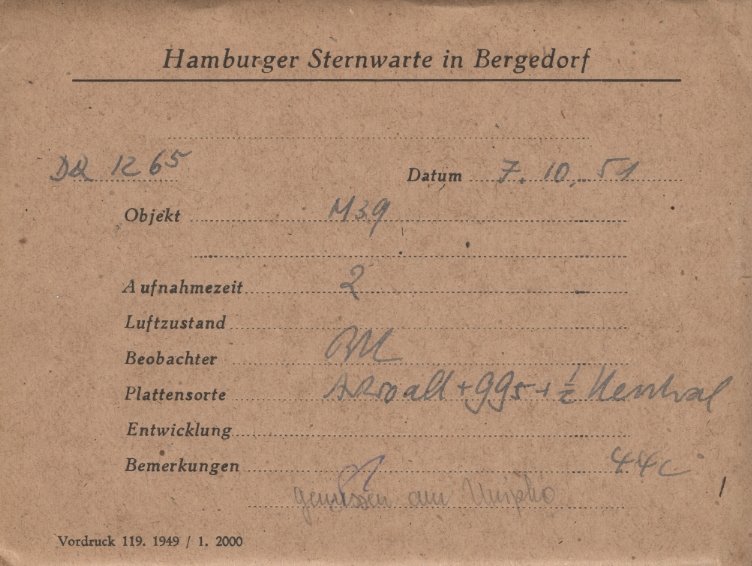 Hamburger Sternwarte in Bergedorf
1265 Datum 7. 10. 51
Objekt M39
Aufnahmezeit 2
Luftzustand
Beobachter
Plattensorte alt + 995 + ½ Neutral
Entwicklung
Bemerkungen 44c
gemessen am Unipho
Vordruck 119. 1949 / 1. 2000